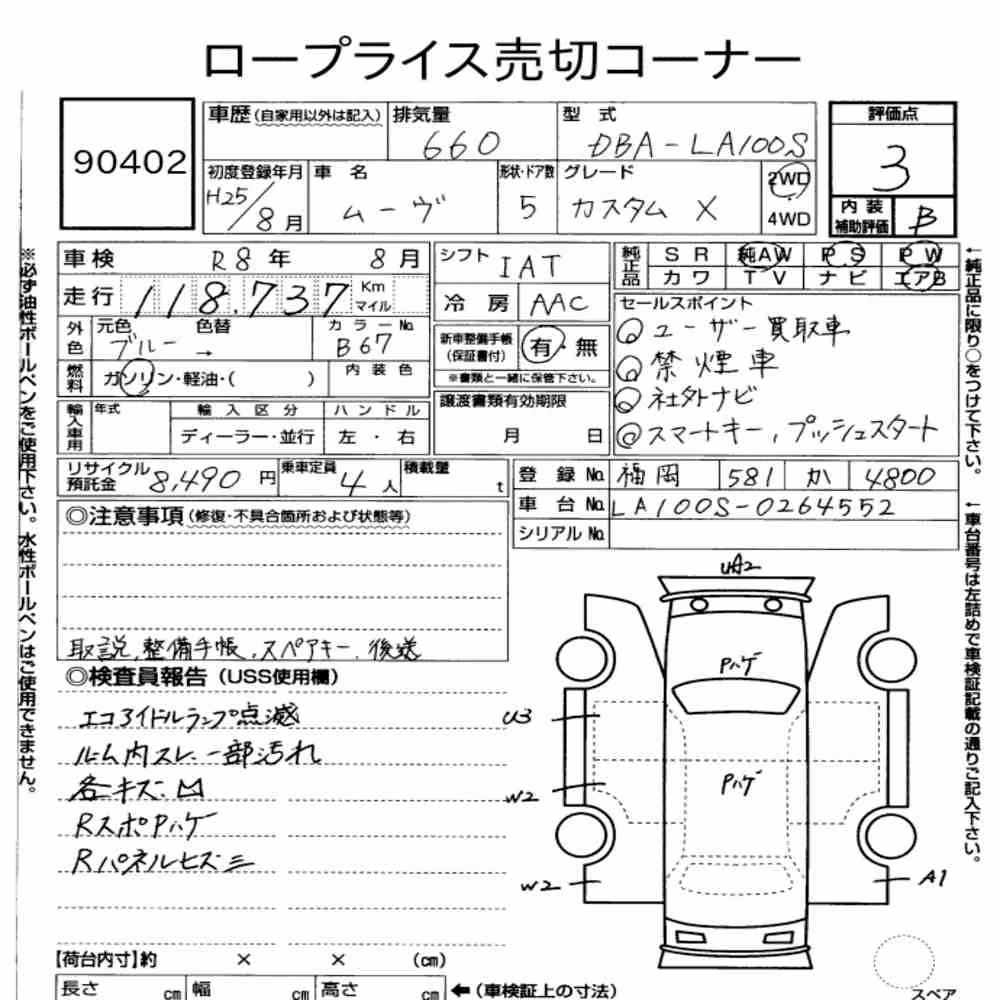 ロープライス売切コーナー
90402
車歴(自家用以外は記入) 排気量 660 型式 DBA-LA100S
評価点 3
内装補助評価 B
初度登録年月 H25/8月 車名 ムーヴ 形状・ドア数 5 グレード カスタム X 2WD 4WD
車検 R8年 8月
シフト IAT
純正品 SR 純AW PS PW
カワ TV ナビ エアB
走行 118,737 Km マイル
冷房 AAC
セールスポイント
◎ユーザー買取車
◎禁煙車
◎社外ナビ
◎スマートキー,プッシュスタート
外色 元色 ブルー 色替 → カラーNo. B67
新車整備手帳(保証書付) 有・無
※書類と一緒に保管下さい。
燃料 ガソリン・軽油・( ) 内装色
譲渡書類有効期限
月 日
輸入車用 年式 輸入区分 ハンドル
ディーラー・並行 左・右
リサイクル預託金 8,490円 乗車定員 4人 積載量 t
登録No. 福岡 581 か 4800
車台No. LA100S-0264552
シリアルNo.
◎注意事項(修復・不具合箇所および状態等)
取説,整備手帳,スペアキー,後送
◎検査員報告(USS使用欄)
エコアイドルランプ点滅
ルーム内スレ、一部汚れ
各キズ、凹
RスポPハゲ
Rパネルヒズミ
UA2
Pハゲ
U3
Pハゲ
W2
W2
A1
スペア
【荷台内寸】約 × × (cm)
長さ cm 幅 cm 高さ cm ←(車検証上の寸法)
※必ず油性ボールペンをご使用下さい。水性ボールペンはご使用できません。
←純正品に限り○をつけて下さい。
←車台番号は左詰めで車検証記載の通りご記入下さい。